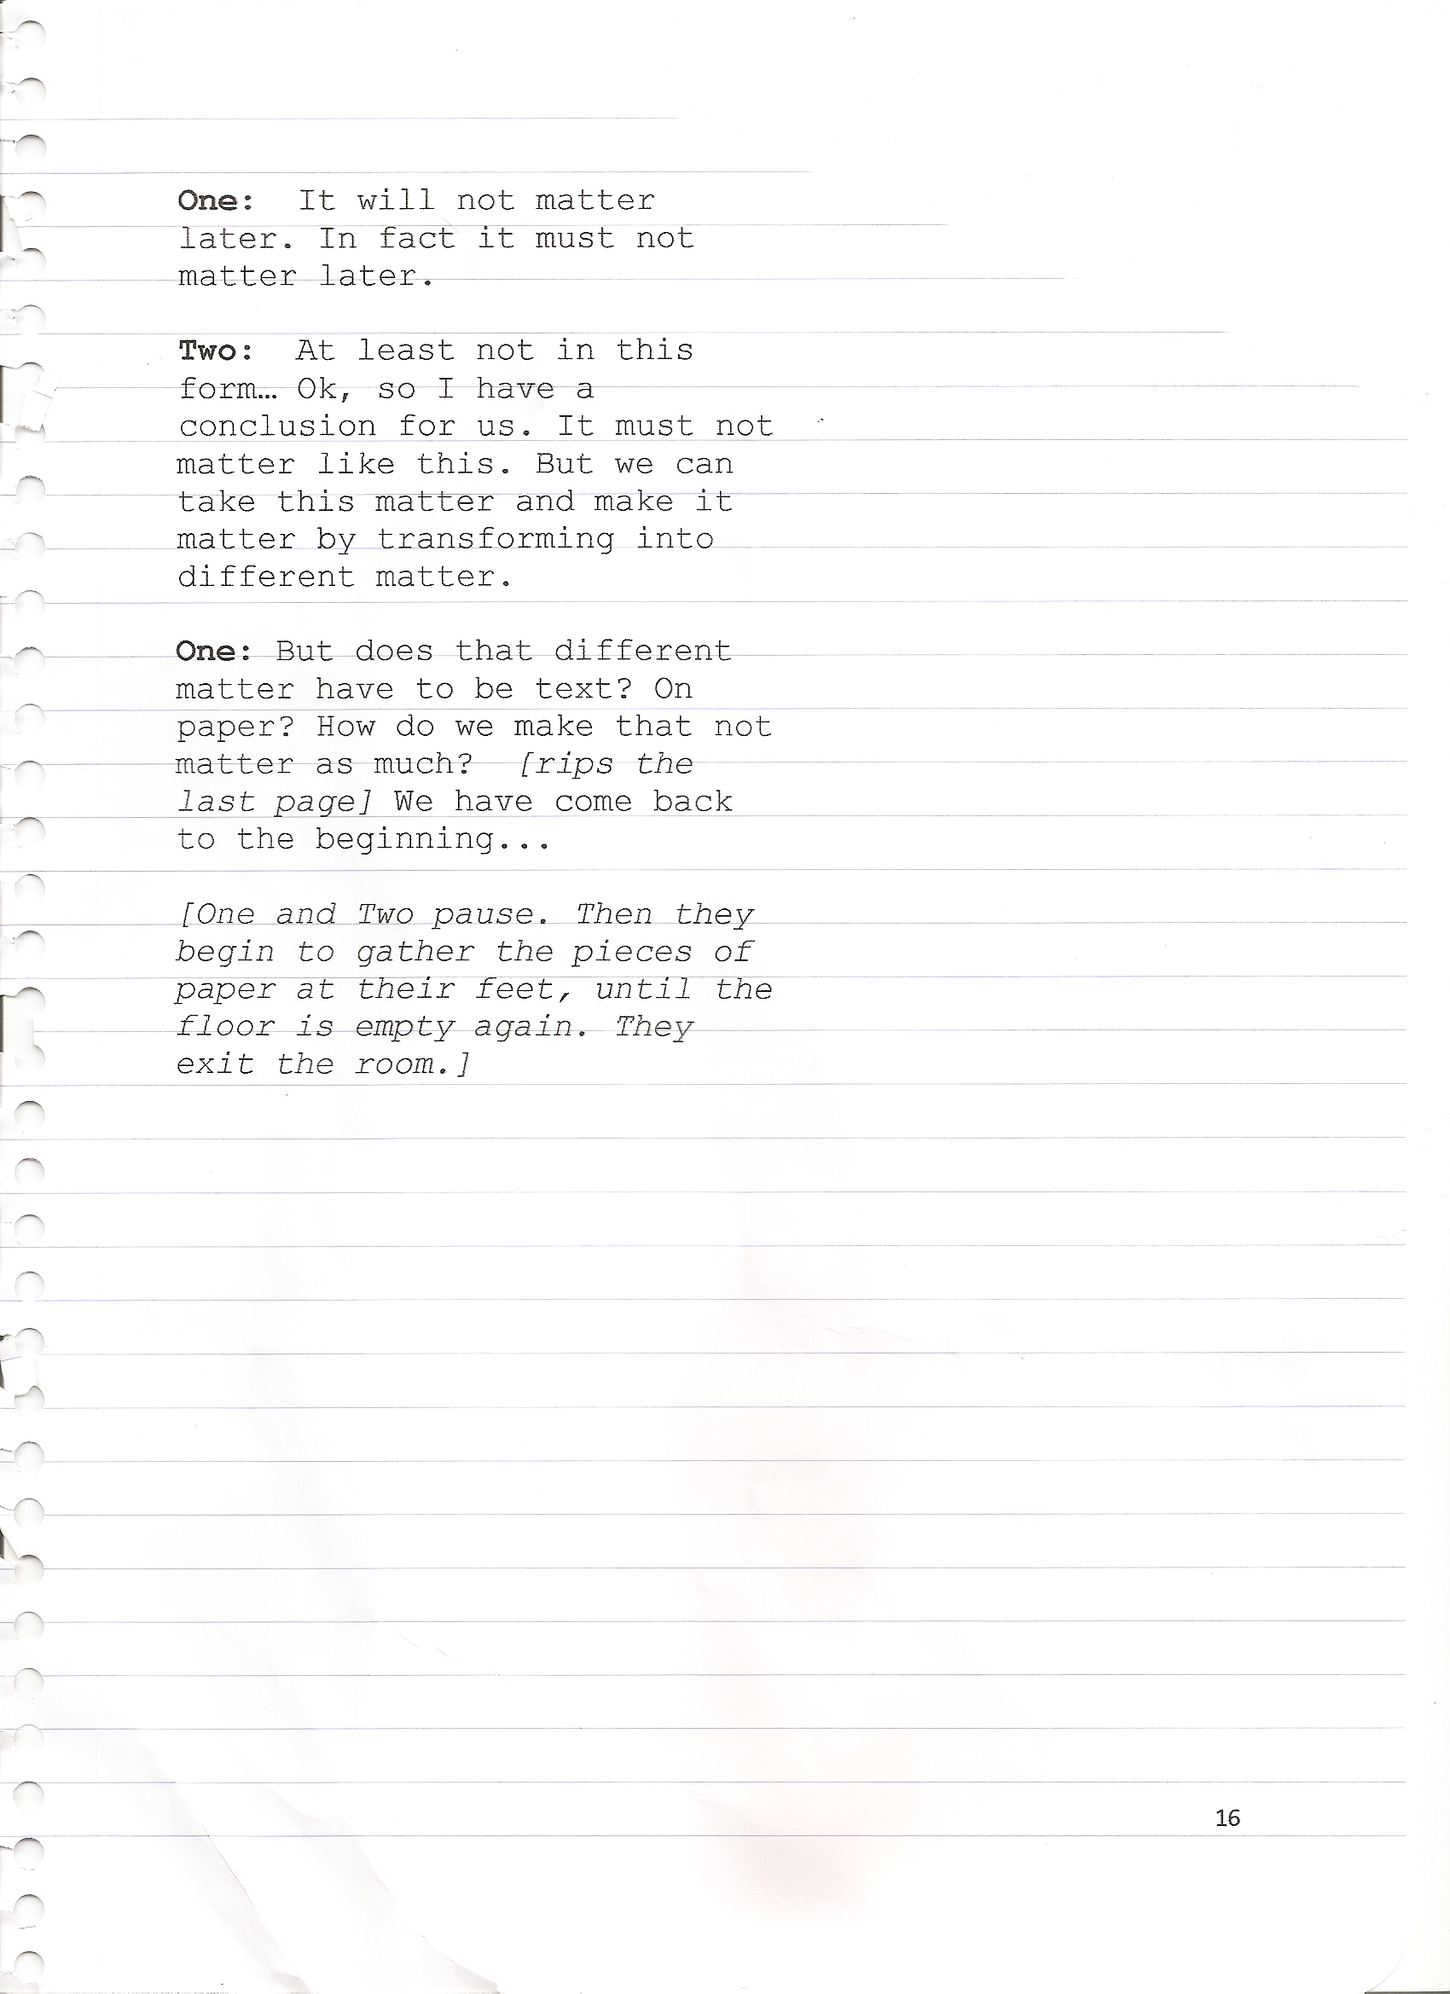 One:  It will not matter
later. In fact it must not
matter later.
Two:  At least not in this
form… Ok, so I have a
conclusion for us. It must not
matter like this. But we can
take this matter and make it
matter by transforming into
different matter.
One: But does that different
matter have to be text? On
paper? How do we make that not
matter as much?  [rips the
last page] We have come back
to the beginning...
[One and Two pause. Then they
begin to gather the pieces of
paper at their feet, until the
floor is empty again. They
exit the room.]
16